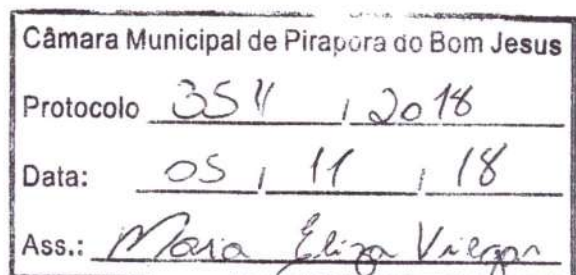 Câmara Municipal de Pirapora do Bom Jesus
Protocolo / 2018
Data: 05 / 11 / 18
Ass.: Maria Eliza